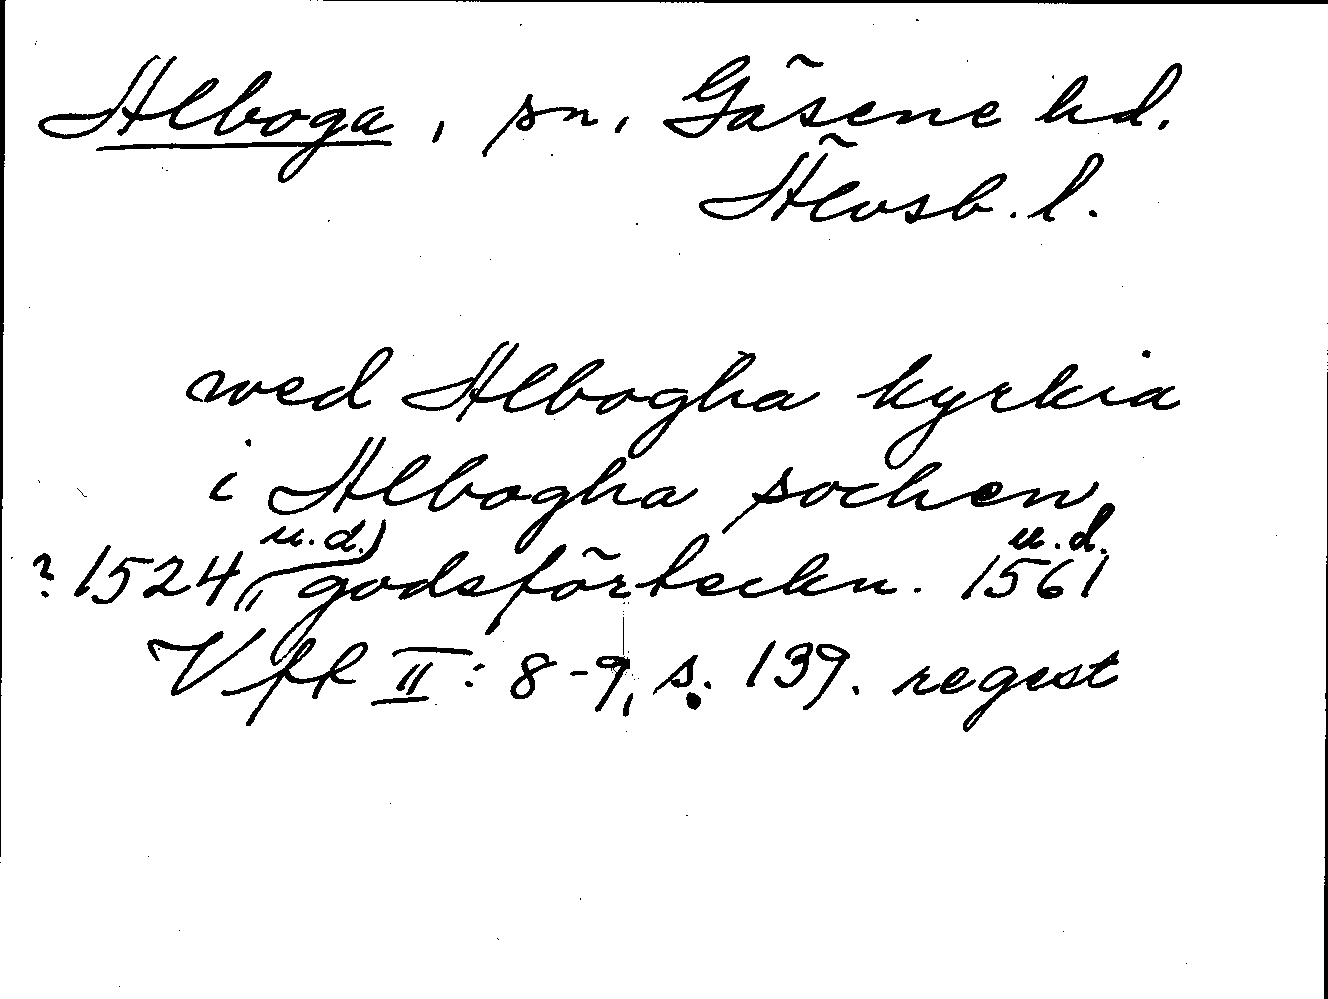 Alboga, sn, Gäsene hd.
Älvsb. l.
wed Albogha kyrkia
i Albogha sochen
? 1524, u.d.) godsförteckn. 1561 u.d.
Vffk II: 8-9, s. 139. regest